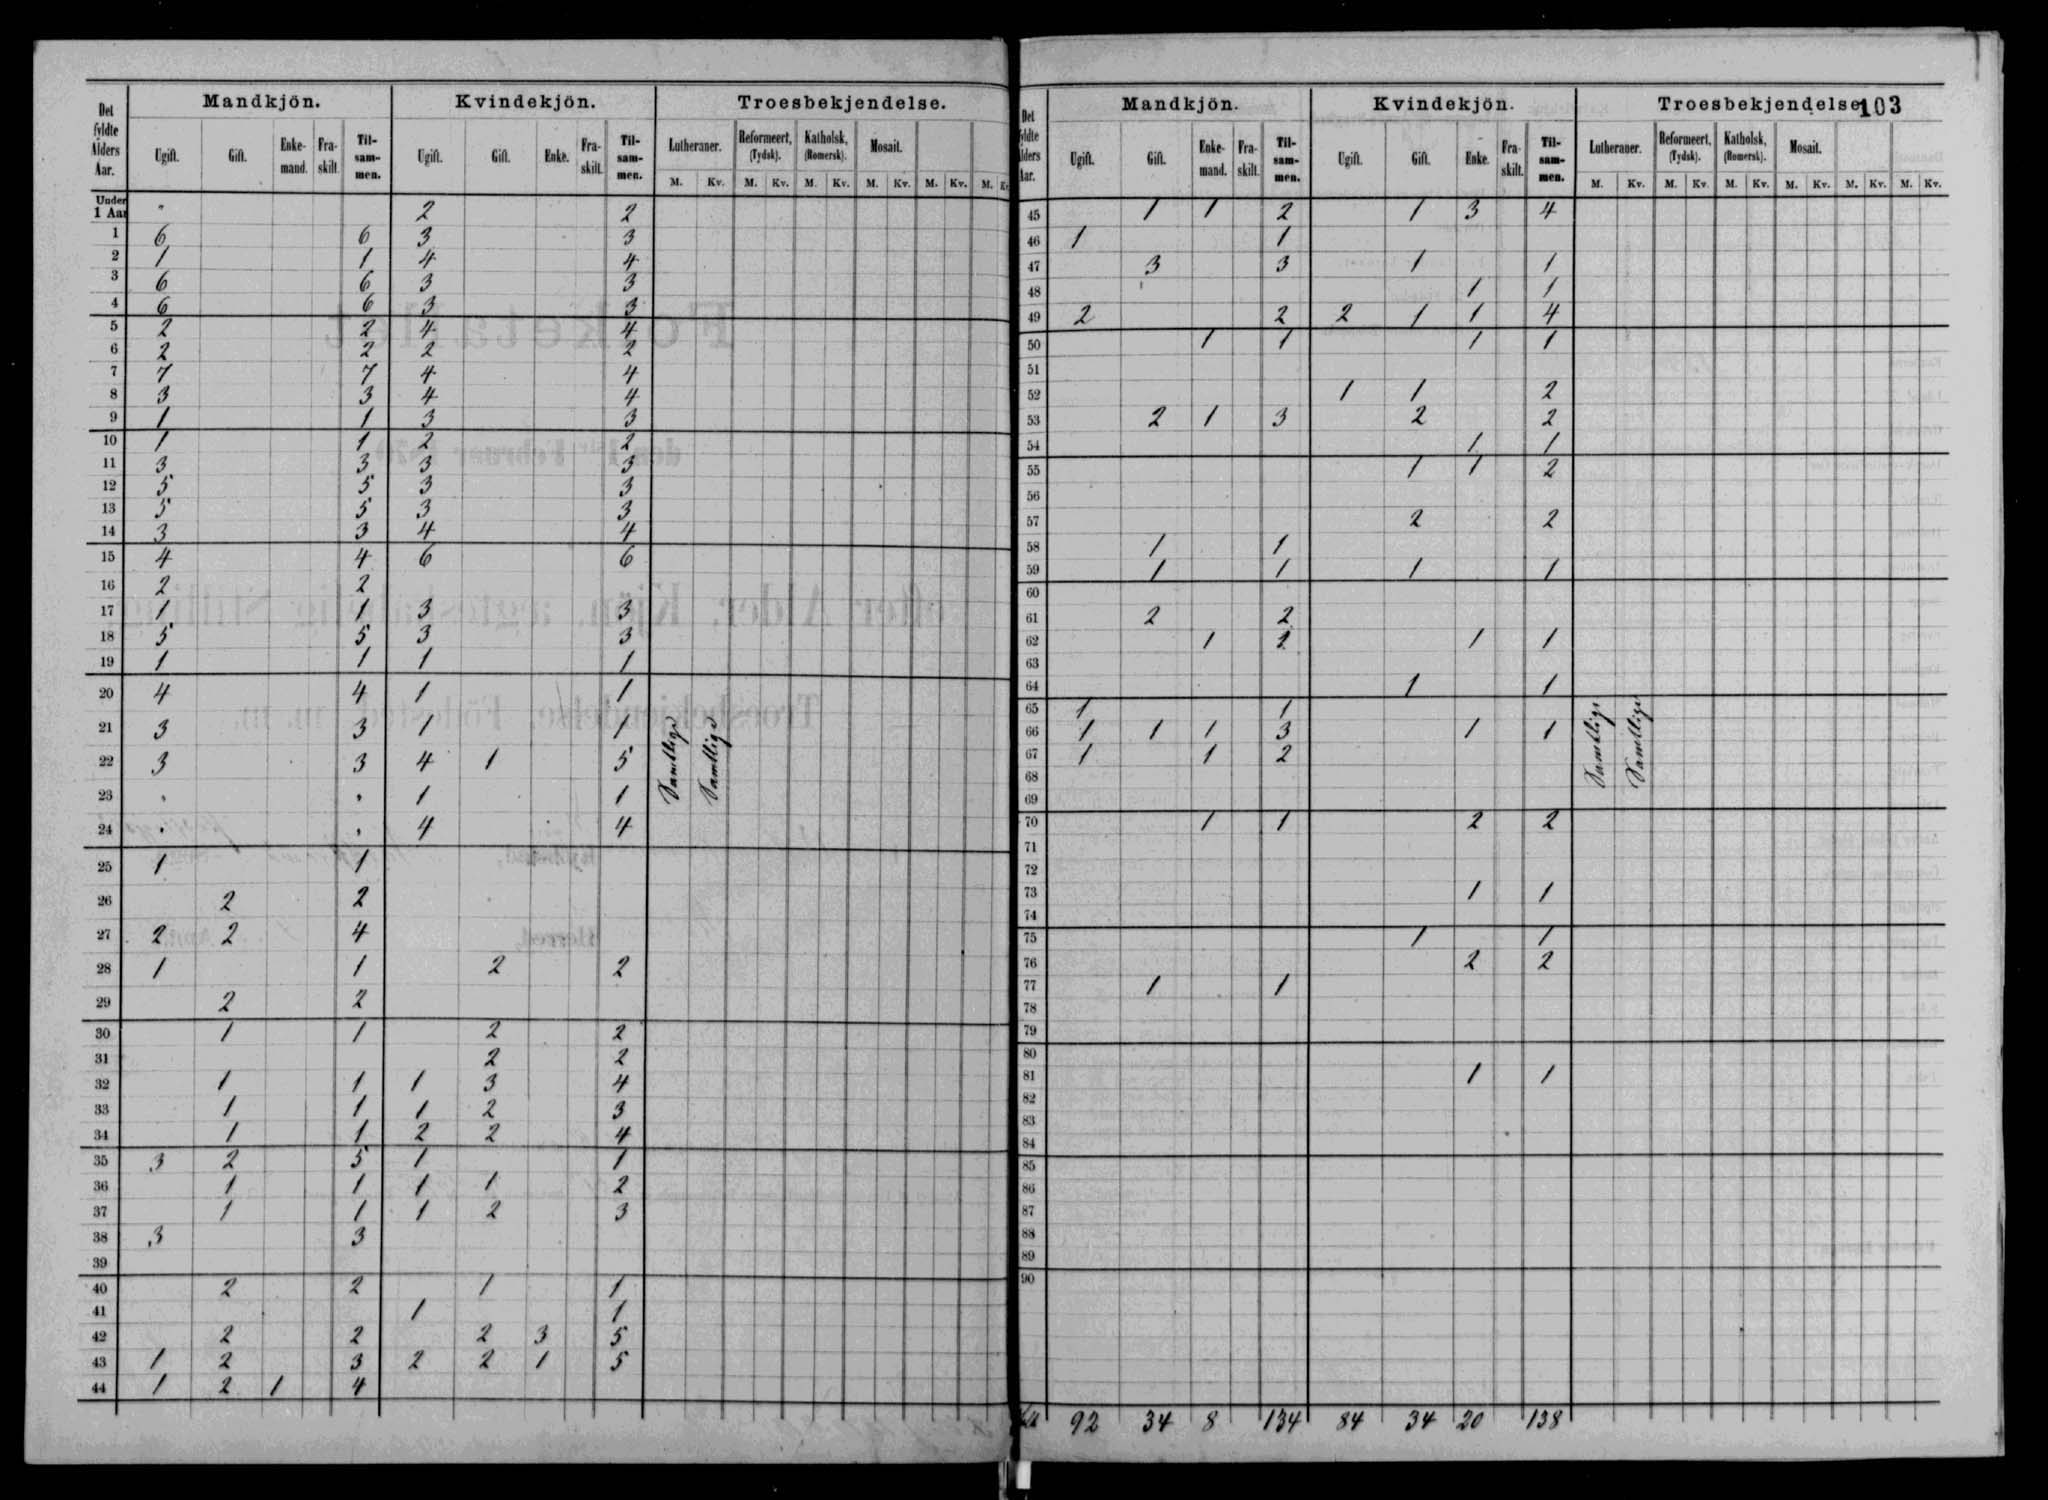 Det fyldte Alders Aar. Mandkjön. Kvindekjön. Troesbekjendelse.
Ugift. Gift. Enke-mand. Fra-skilt. Til-sam-men. Ugift. Gift. Enke. Fra-skilt. Til-sam-men. Lutheraner. Reformeert, (Tydsk). Katholsk, (Romersk). Mosait.
M. Kv. M. Kv. M. Kv. M. Kv. M. Kv. M.
Under 1 Aar " 2 2
1 6 6 3 3
2 1 1 4 4
3 6 6 3 3
4 6 6 3 3
5 2 2 4 4
6 2 2 2 2
7 7 7 4 4
8 3 3 4 4
9 1 1 3 3
10 1 1 2 2
11 3 3 3 3
12 5 5 3 3
13 5 5 3 3
14 3 3 4 4
15 4 4 6 6
16 2 2
17 1 1 3 3
18 5 5 3 3
19 1 1 1 1
20 4 4 1 1
21 3 3 1 1
22 3 3 4 1 5
Samtlige Samtlige
23 " " 1 1
24 " " 4 4
25 1 1
26 2 2
27 2 2 4
28 1 1 2 2
29 2 2
30 1 1 2 2
31 2 2
32 1 1 1 3 4
33 1 1 1 2 3
34 1 1 2 2 4
35 3 2 5 1 1
36 1 1 1 1 2
37 1 1 1 2 3
38 3 3
39
40 2 2 1 1
41 1 1
42 2 2 2 3 5
43 1 2 3 2 2 1 5
44 1 2 1 4
103
Det fyldte Alders Aar. Mandkjön. Kvindekjön. Troesbekjendelse.
Ugift. Gift. Enke-mand. Fra-skilt. Til-sam-men. Ugift. Gift. Enke. Fra-skilt. Til-sam-men. Lutheraner. Reformeert, (Tydsk). Katholsk, (Romersk). Mosait.
M. Kv. M. Kv. M. Kv. M. Kv. M. Kv. M. Kv.
45 1 1 2 1 3 4
46 1 1
47 3 3 1 1
48 1 1
49 2 2 2 1 1 4
50 1 1 1 1
51
52 1 1 2
53 2 1 3 2 2
54 1 1
55 1 1 2
56
57 2 2
58 1 1
59 1 1 1 1
60
61 2 2
62 1 1 1
63
64 1 1
65 1 1
66 1 1 1 3 1 1
Samtlige Samtlige
67 1 1 2
68
69
70 1 1 2 2
71
72
73 1 1
74
75 1 1
76 2 2
77 1 1
78
79
80
81 1 1
82
83
84
85
86
87
88
89
90
92 34 8 134 84 34 20 138